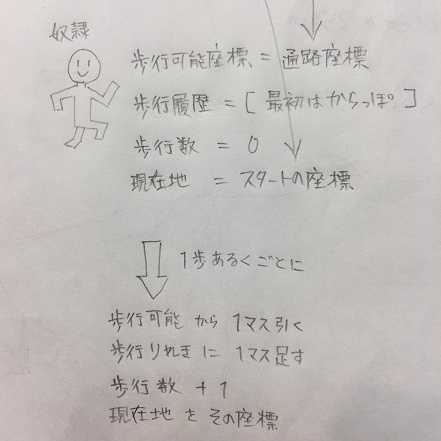 奴隷
歩行可能座標 = 通路座標
歩行履歴 = [ 最初はからっぽ ]
歩行数 = 0
現在地 = スタートの座標
1歩あるくごとに
歩行可能 から 1マス引く
歩行りれきに 1マス足す
歩行数 +1
現在地を その座標